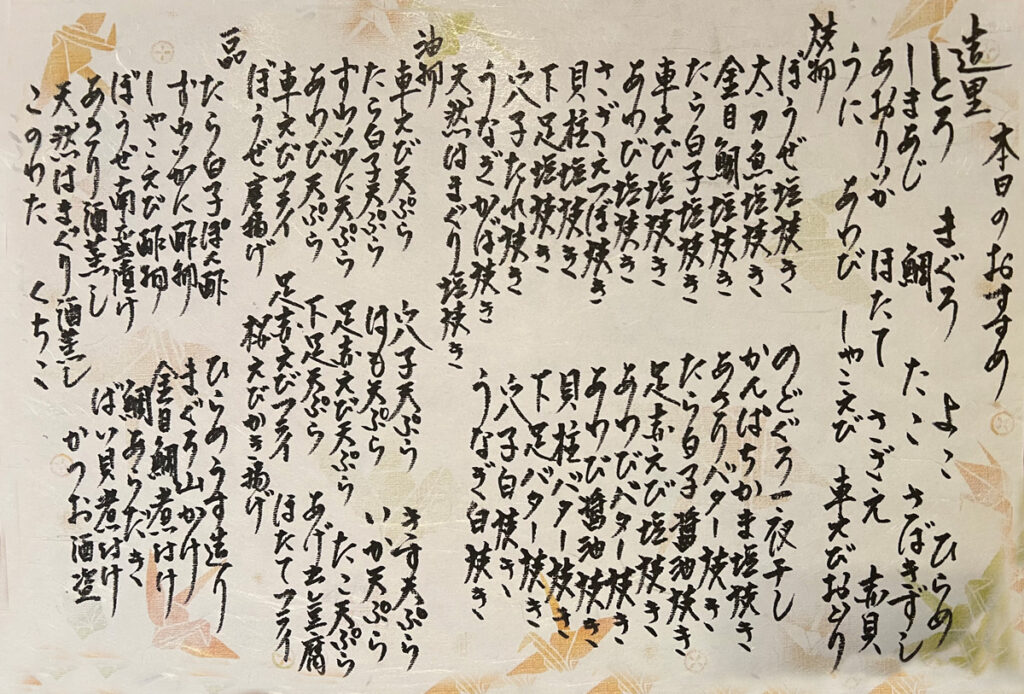 本日のおすすめ
造里
とろ　まぐろ　よこ　ひらめ
しまあじ　鯛　たこ　さばきずし
あおりいか　ほたて　さざえ　赤貝
うに　あわび　しゃこえび　車えびおどり
焼物
ぼうぜ塩焼き　のどぐろ一夜干し
太刀魚塩焼き　かんぱちかま塩焼き
金目鯛塩焼き　あさりバター焼き
たら白子塩焼き　たら白子醤油焼き
車えび塩焼き　足赤えび塩焼き
あわび塩焼き　あわびバター焼き
さざえつぼ焼き　あわび醤油焼き
貝柱塩焼き　貝柱バター焼き
下足塩焼き　下足バター焼き
穴子たれ焼き　穴子白焼き
うなぎかば焼き　うなぎ白焼き
天然はまぐり塩焼き
油物
車えび天ぷら　穴子天ぷら　きす天ぷら
たら白子天ぷら　はも天ぷら　いか天ぷら
ずわいかに天ぷら　足赤えび天ぷら　たこ天ぷら
あわび天ぷら　下足天ぷら　あげ出し豆腐
車えびフライ　足赤えびフライ　ほたてフライ
ぼうぜ唐揚げ　桜えびかき揚げ
一品
たら白子ぽん酢　ひらめうす造り
ずわいかに酢物　まぐろ山かけ
しゃこえび酢物　金目鯛煮付け
ぼうぜ南蛮漬け　鯛あらだき
あさり酒蒸し　ばい貝煮付け
天然はまぐり酒蒸し　かつお酒盗
このわた　くちこ